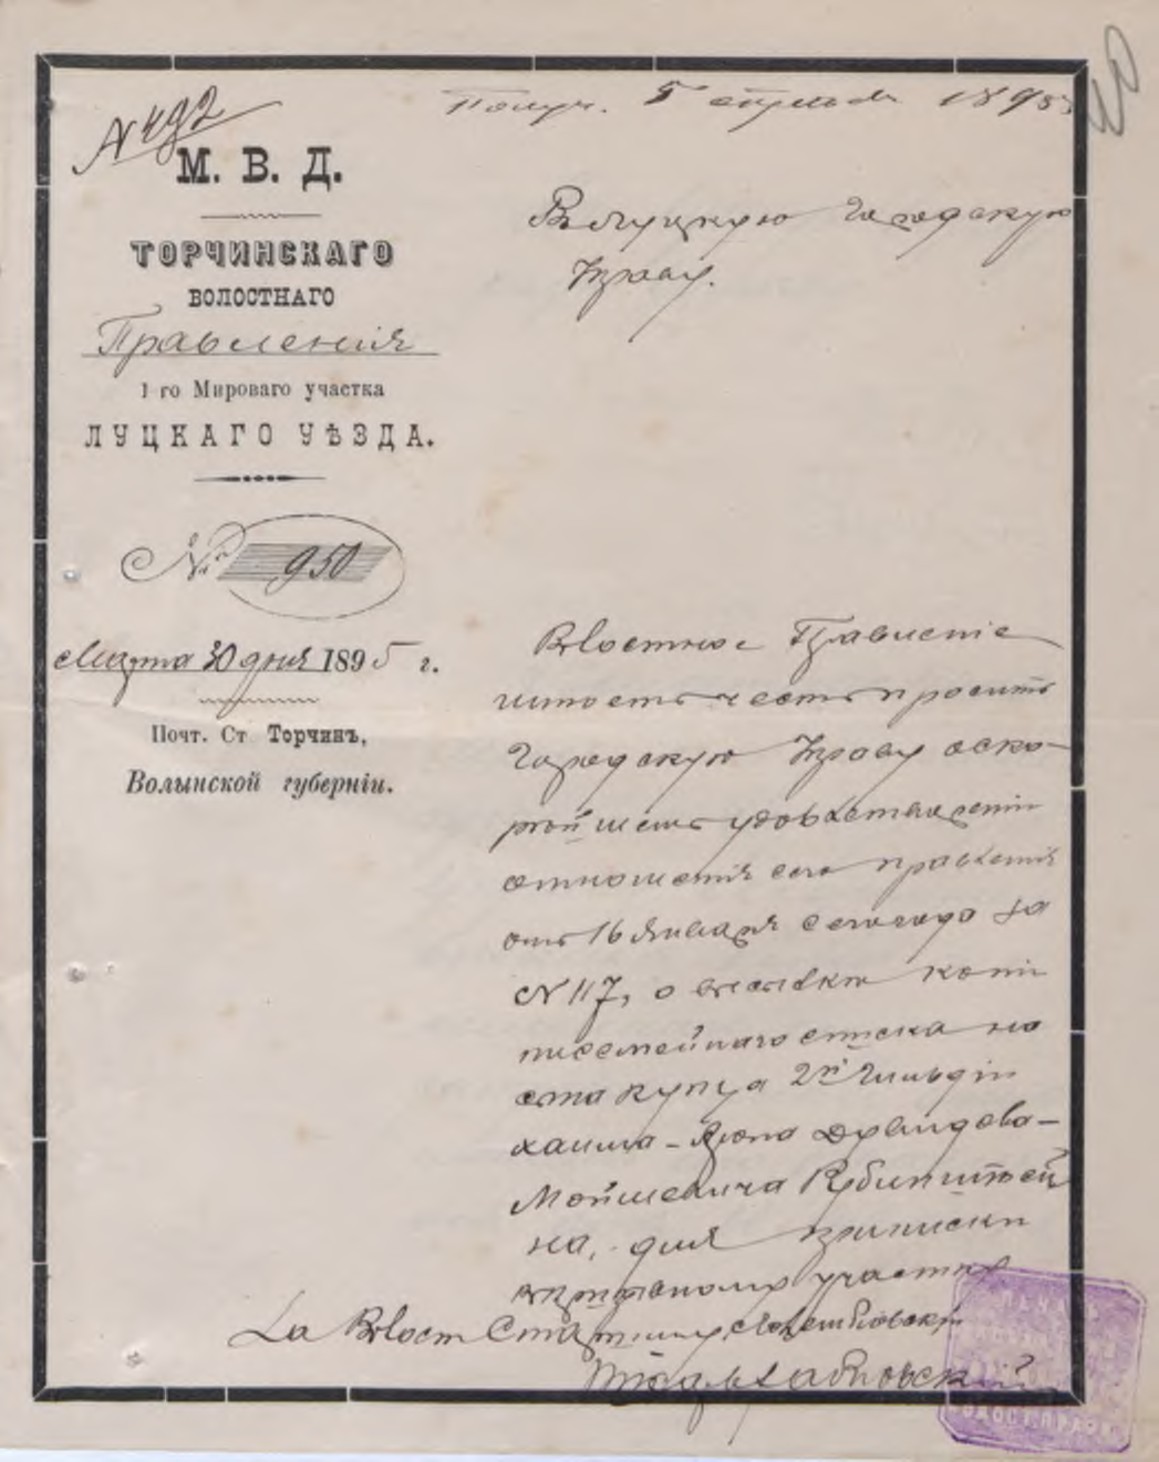 № 492
Получ. 5 апреля 1895
М. В. Д.
ТОРЧИНСКАГО
ВОЛОСТНАГО
Правленія
1-го Мироваго участка
ЛУЦКАГО УѢЗДА.
№ 950
Марта 30 дня 1895 г.
Почт. Ст. Торчинъ,
Волынской губерніи.
Въ Луцкую Городскую
Управу.
Волостное Правленіе
имѣетъ честь просить
Городскую Управу о ско-
рѣйшемъ удовлетвореніи
отношенія сего правленія
отъ 16 Января сего года за
№ 117, о высылкѣ копіи
посемейнаго списка на
купца 2й Гильдіи
Хаима-
Мойшевича Рубинштей
на, для приписки
къ призывному участку
За Волост Старшину
ПЕЧАТЬ